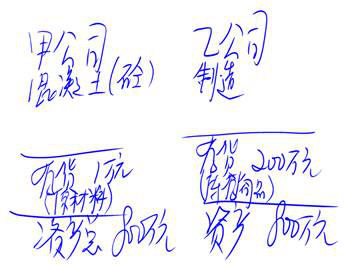 甲公司
混凝土(砼)
乙公司
制造
存货 1万元
(原材料)
资产总 800万元
存货 200万元
(库存商品)
资产 800万元